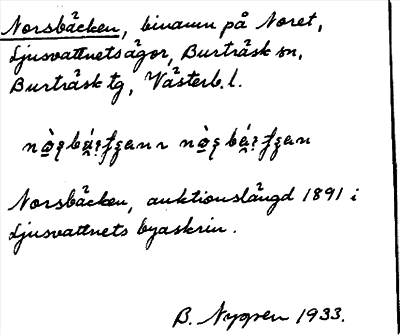 Norsbäcken, binamn på Noret,
Ljusvattnetsägor, Burträsk sn,
Burträsk tg, Västerb. l.
Norsbäcken, auktionslängd 1891 i
Ljusvattnets byaskrin.
B. Nygren 1933.